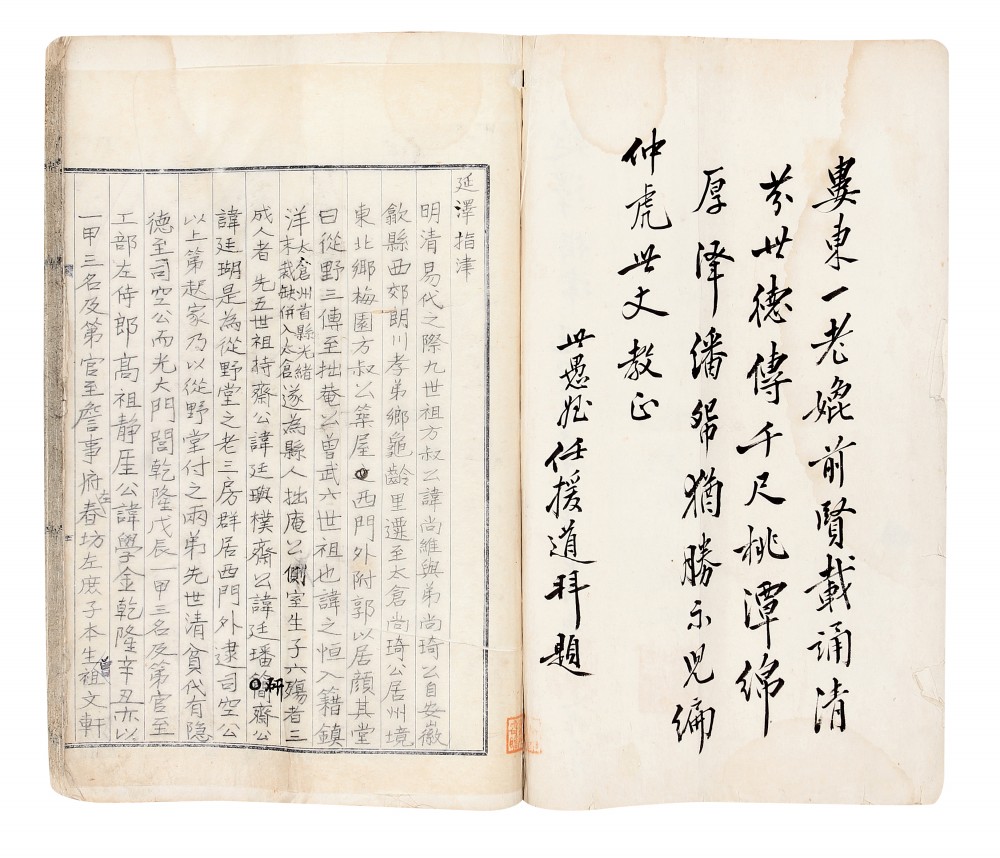 婁東一老媲前賢載誦清
芬世德傳千尺桃潭綿
厚澤潘譽猶勝示兒編
仲虎世丈教正
世愚姪任援道拜題
延澤指津
明清易代之際九世祖方叔公諱尚維與弟尚琦公自安徽
歙縣西郊朗川孝弟鄉龜齡里遷至太倉尚琦公居州境
東北鄉梅園方叔公築屋西門外附郭以居顏其堂
曰從野三傳至拙菴公曾武六世祖也諱之恒入籍鎮
洋太倉州首縣光緒末裁缺併入太倉遂為縣人拙庵公側室生子六殤者三
成人者先五世祖持齋公諱廷璵樸齋公諱廷璠研齋公
諱廷瑚是為從野堂之老三房群居西門外逮司空公
以上第起家乃以從野堂付之兩弟先世清貧代有隱
德至司空公而光大門閭乾隆戊辰一甲三名及第官至
工部左侍郎高祖靜厓公諱學金乾隆辛丑亦以
一甲三名及第官至詹事府左春坊左庶子本生曾祖文軒